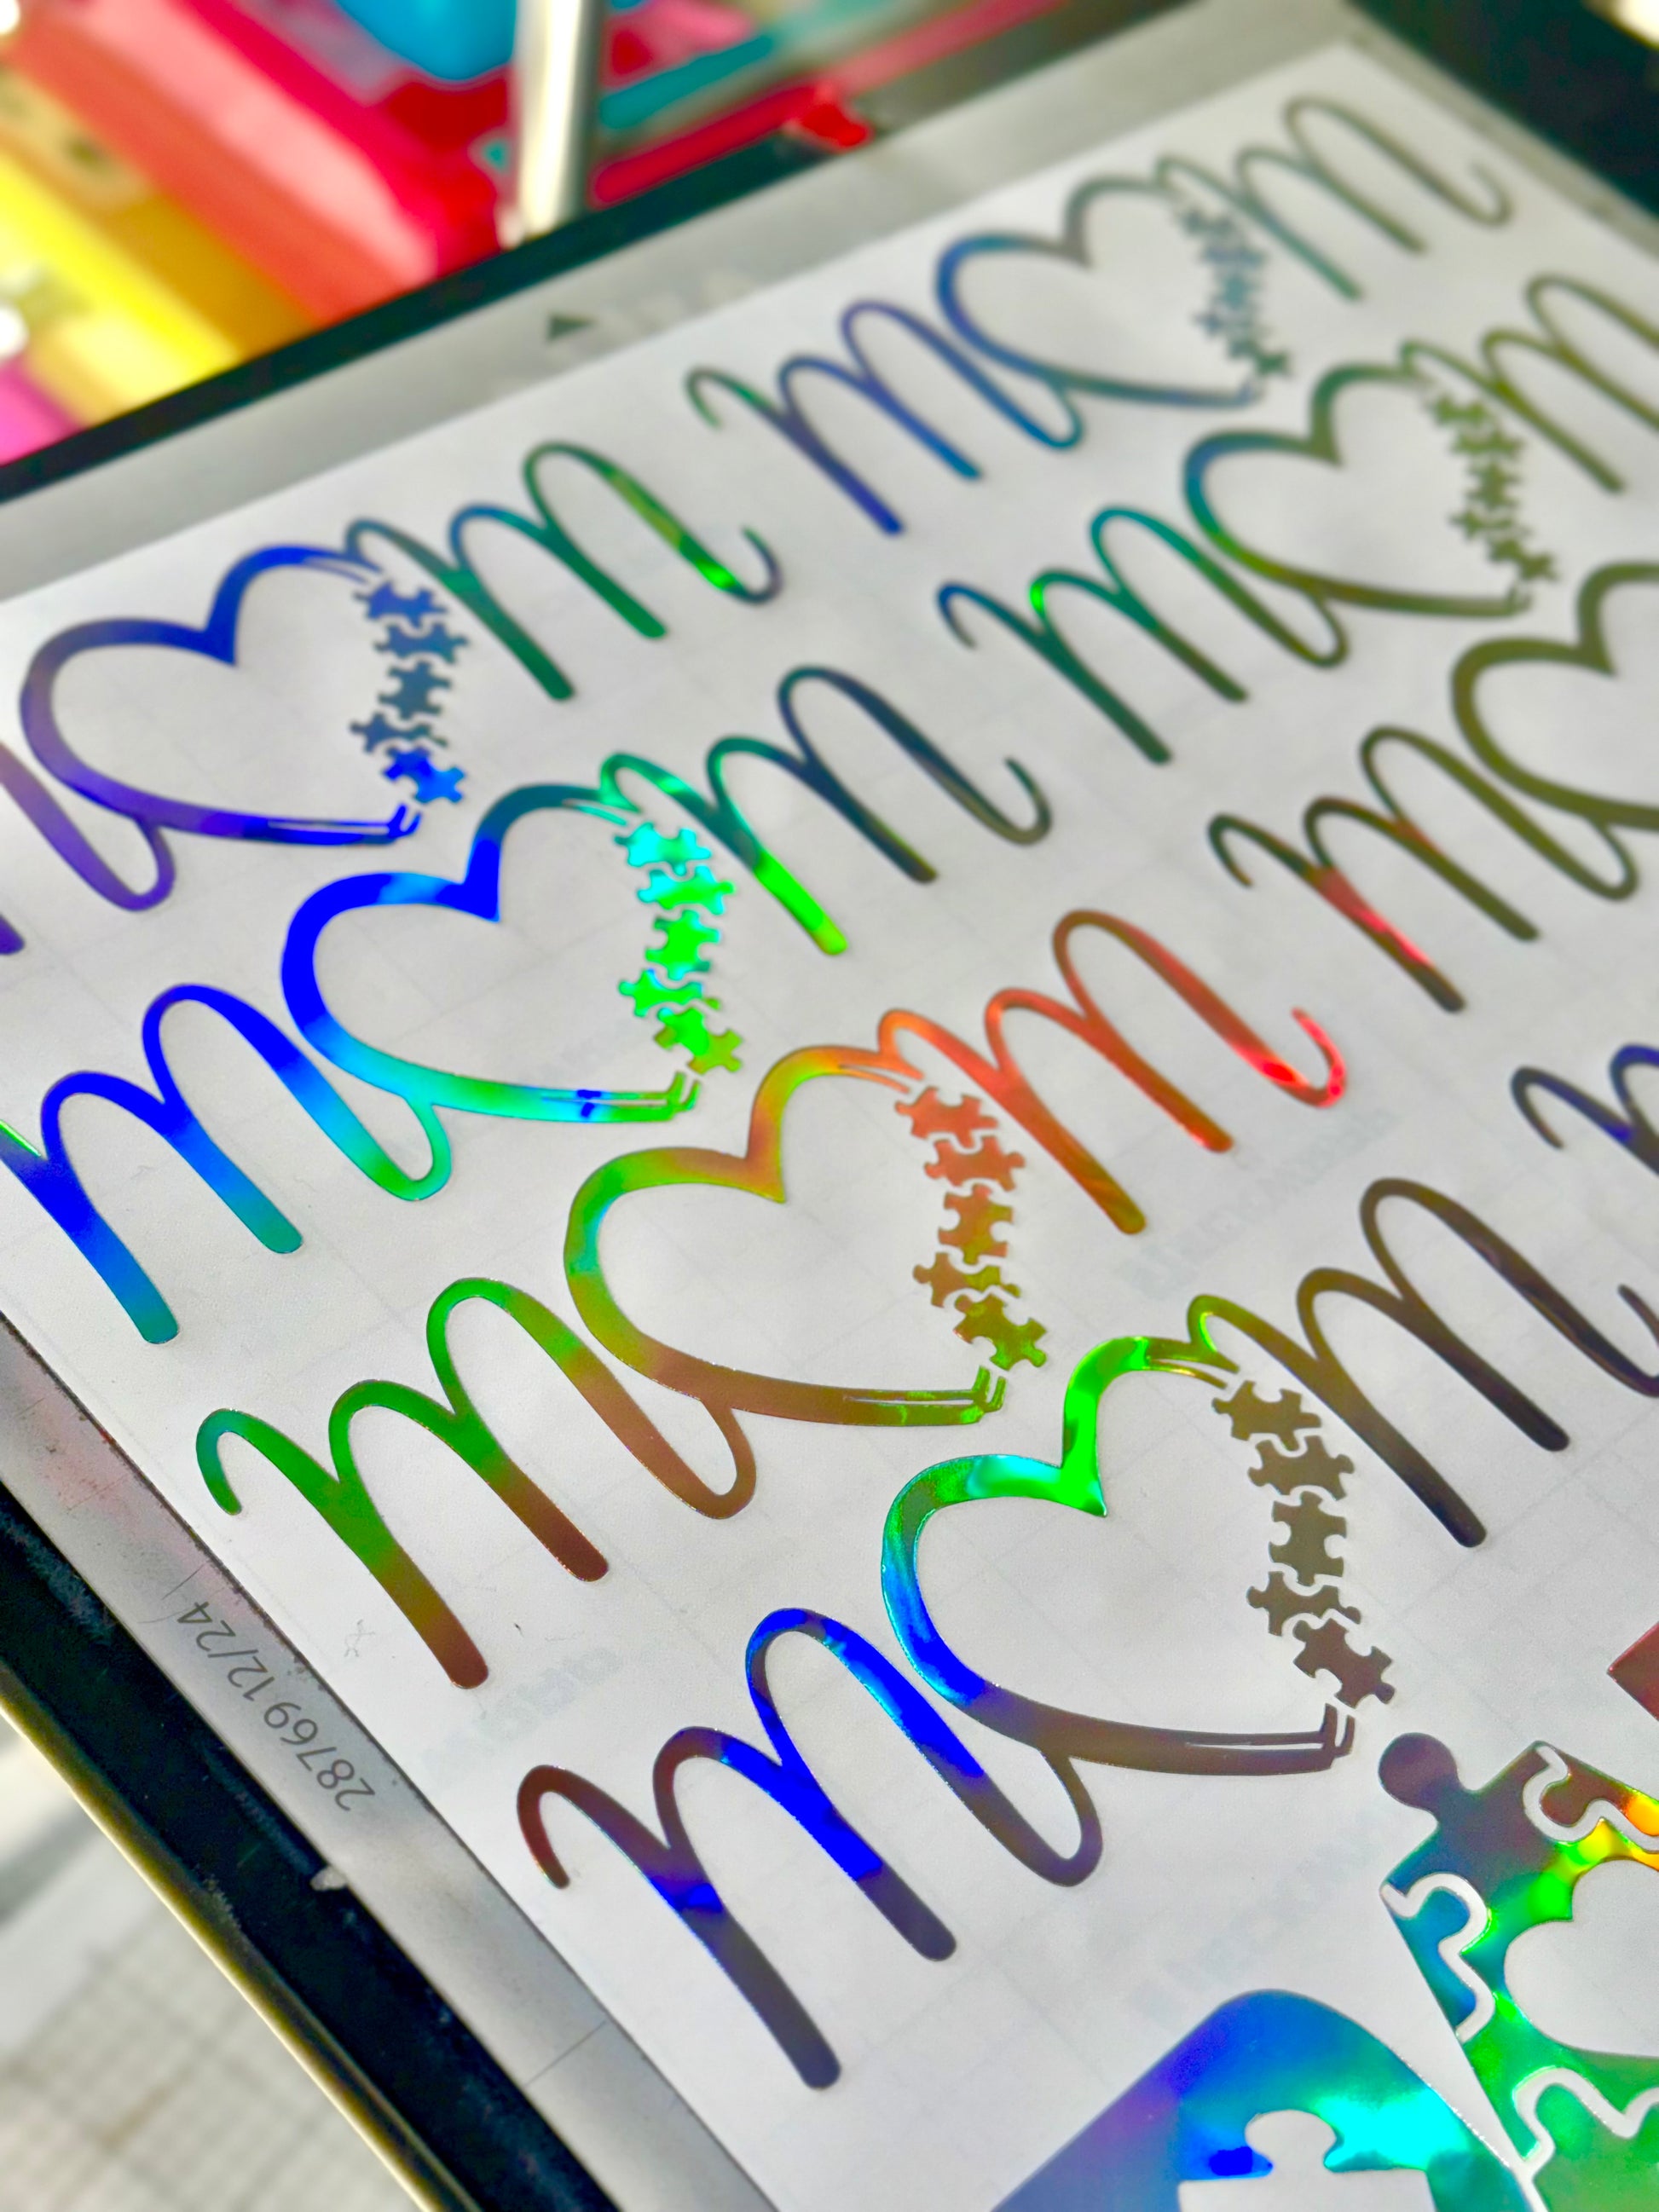 mom mom
mom mom
mom mo
mom
28769 12/24